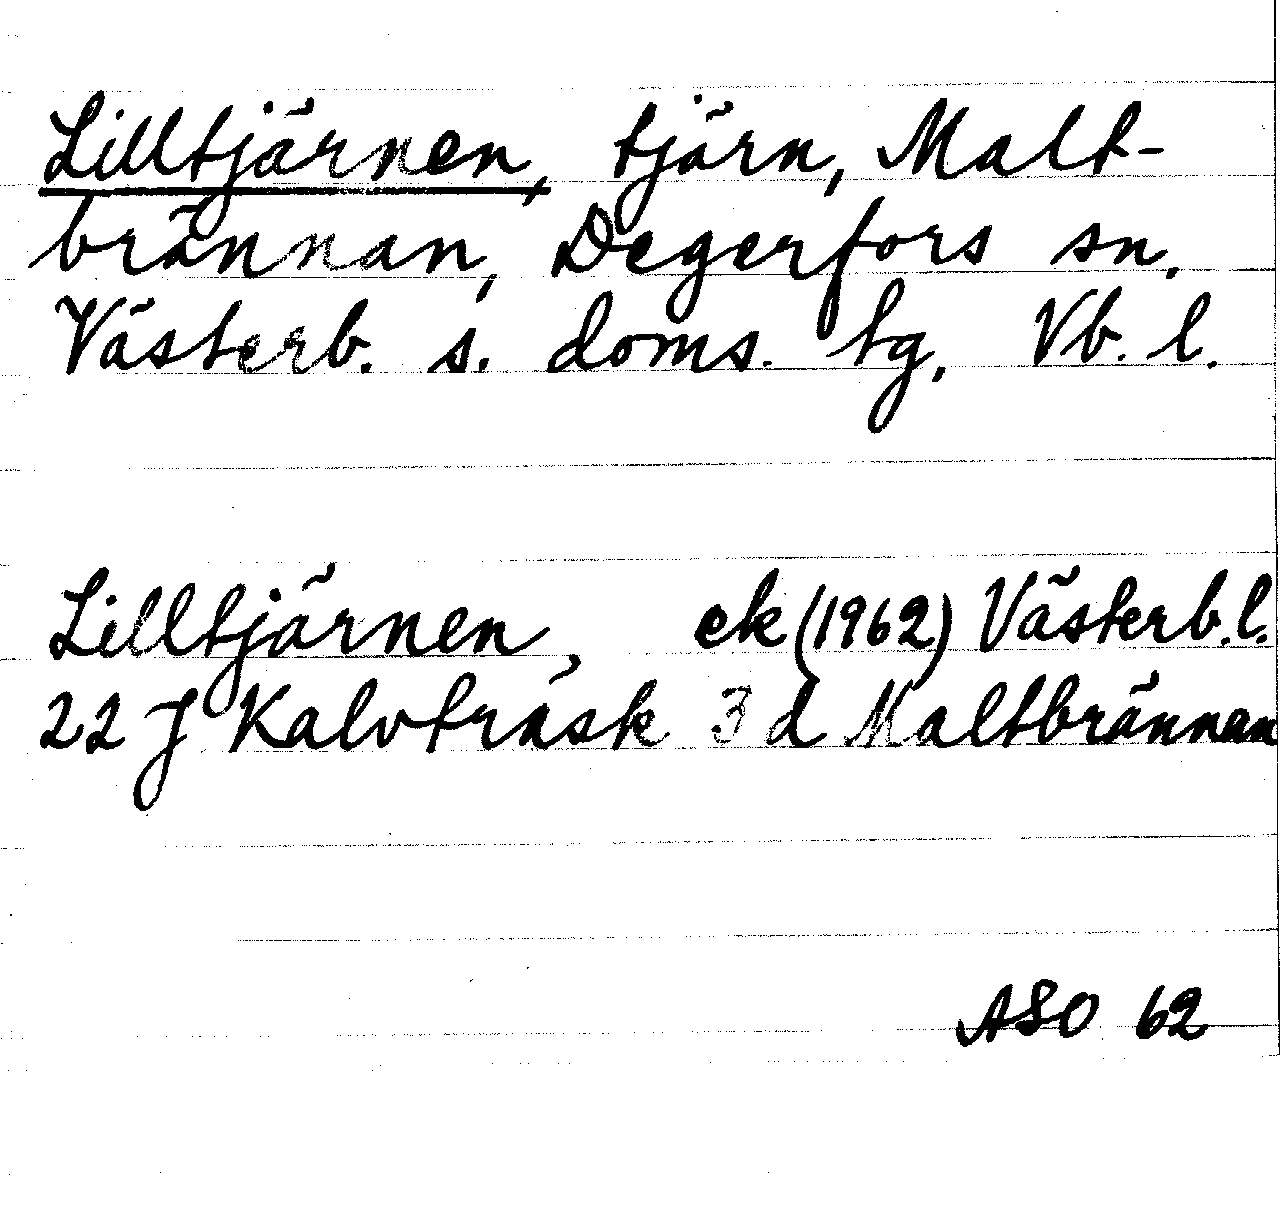 Lilltjärnen, tjärn, Malt-
brännan, Degerfors sn.
Västerb. s. doms. tg. Vb. l.
Lilltjärnen, ek (1962) Västerb. l.
22 J Kalvträsk 3 d Maltbrännan
ASO 62